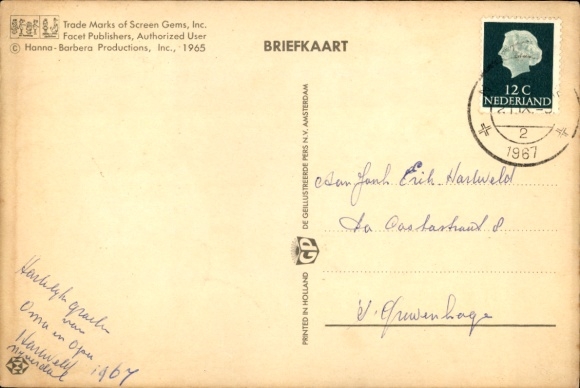 Trade Marks of Screen Gems, Inc.
Facet Publishers, Authorized User
© Hanna-Barbera Productions, Inc., 1965
BRIEFKAART
12 C
NEDERLAND
2
1967
DE GEILLUSTREERDE PERS N.V. AMSTERDAM
GP
PRINTED IN HOLLAND
Aan Jonh. Erik Hartveld
8
s' Gravenhage
Hartelijk
van
Oma en Opa
Hartveld
1967